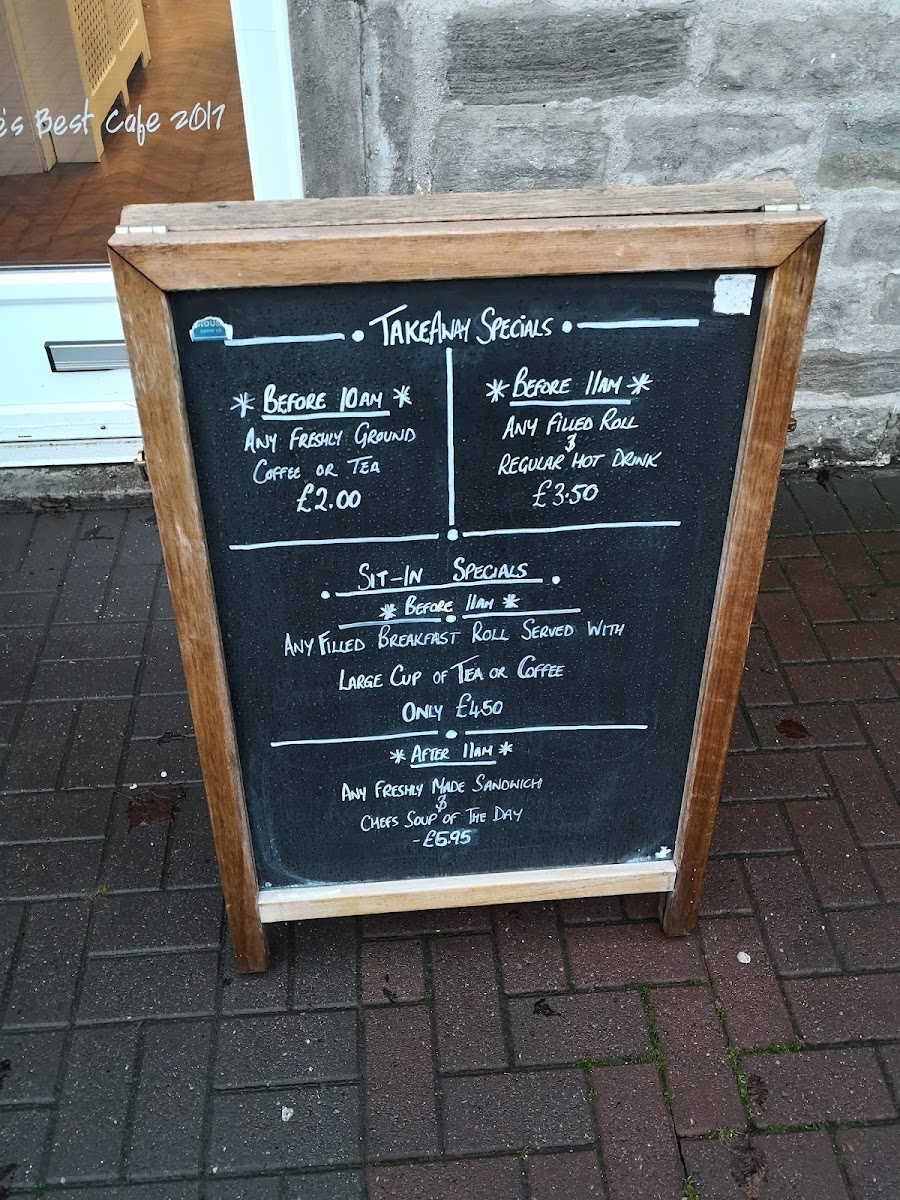 Best Cafe 2017
TAKEAWAY SPECIALS
* BEFORE 10AM *
ANY FRESHLY GROUND
COFFEE OR TEA
£2.00
* BEFORE 11AM *
ANY FILLED ROLL
&
REGULAR HOT DRINK
£3.50
SIT-IN SPECIALS
* BEFORE 11AM *
ANY FILLED BREAKFAST ROLL SERVED WITH
LARGE CUP OF TEA OR COFFEE
ONLY £4.50
* AFTER 11AM *
ANY FRESHLY MADE SANDWICH
&
CHEFS SOUP OF THE DAY